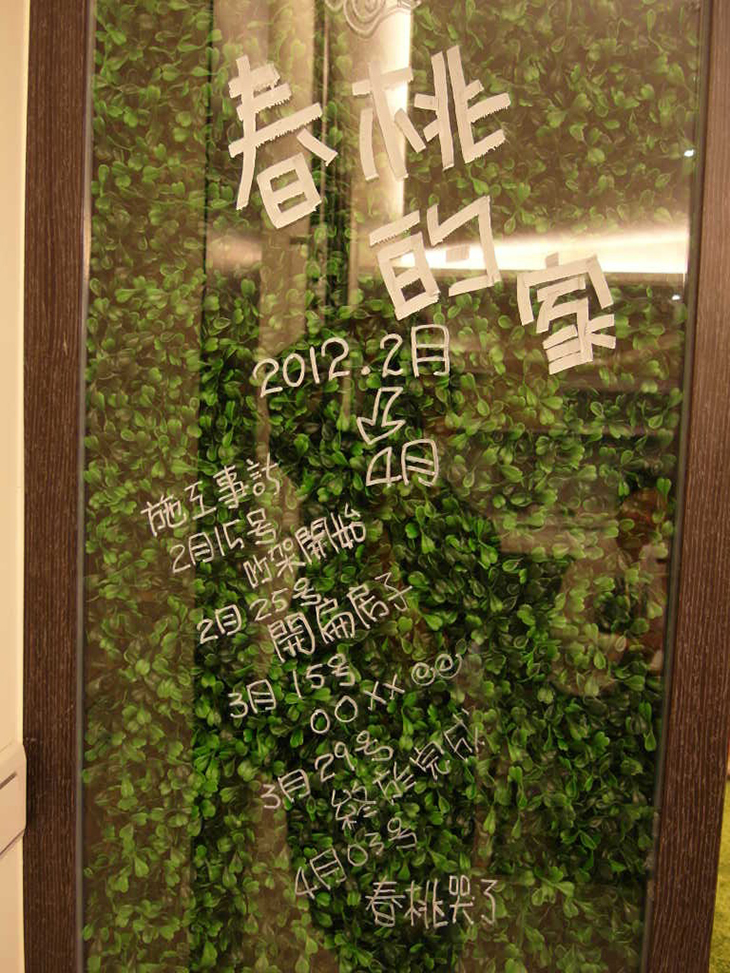 春桃
的家
2012.2月
4月
施工事計
2月15号
吵架開始
2月25号
開扁房子
3月15号
OOXX@@
3月29号
終於完成
4月03号
春桃哭了